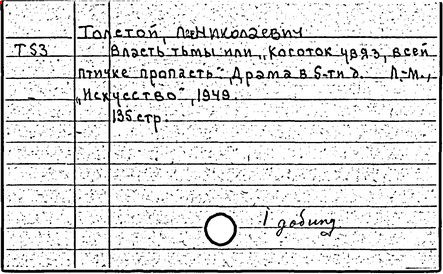 Толстой, Л. Николаевич
T53 Власть тьмы или „Коготок увяз, всей
птичке пропасть“. Драма в 5-ти д. Л.-М.,
„Искусство“, 1949.
135 стр.
1